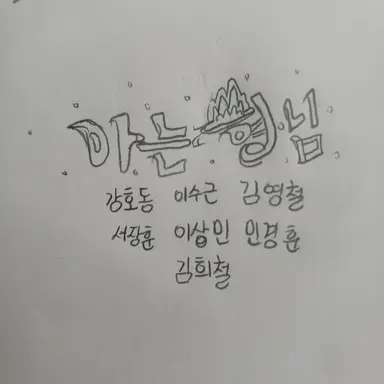 아는 형님
강호동 이수근 김영철
서장훈 이상민 민경훈
김희철